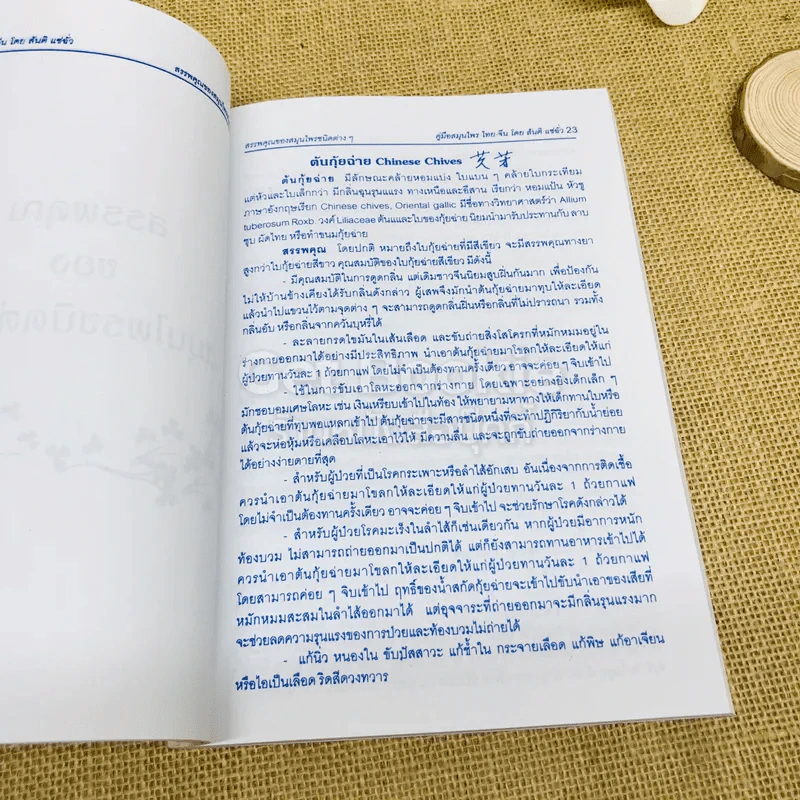 จีน โดย สันติ แซ่ฉั่ว
สรรพคุณของสมุนไพร
สรรพคุณของสมุนไพรชนิดต่าง ๆ
คู่มือสมุนไพร ไทย-จีน โดย สันติ แซ่ฉั่ว 23
ต้นกุ้ยฉ่าย Chinese Chives
ต้นกุ้ยฉ่าย มีลักษณะคล้ายหอมแบ่ง ใบแบน ๆ คล้ายใบกระเทียม
แต่หัวและใบเล็กกว่า มีกลิ่นฉุนรุนแรง ทางเหนือและอีสาน เรียกว่า หอมแป้น หัวซู
ภาษาอังกฤษเรียก Chinese chives, Oriental gallic มีชื่อทางวิทยาศาสตร์ว่า Allium
tuberosum Roxb. วงศ์ Liliaceae ต้นและใบของกุ้ยฉ่าย นิยมนำมารับประทานกับ ลาบ
ซุบ ผัดไทย หรือทำขนมกุ้ยฉ่าย
สรรพคุณ โดยปกติ หมายถึงใบกุ้ยฉ่ายที่มีสีเขียว จะมีสรรพคุณทางยา
สูงกว่าใบกุ้ยฉ่ายสีขาว คุณสมบัติของใบกุ้ยฉ่ายสีเขียว มีดังนี้
- มีคุณสมบัติในการดูดกลิ่น แต่เดิมชาวจีนนิยมสูบฝิ่นกันมาก เพื่อป้องกัน
ไม่ให้บ้านข้างเคียงได้รับกลิ่นดังกล่าว ผู้เสพจึงมักนำต้นกุ้ยฉ่ายมาทุบให้ละเอียด
แล้วนำไปแขวนไว้ตามจุดต่าง ๆ จะสามารถดูดกลิ่นฝิ่นหรือกลิ่นที่ไม่ปรารถนา รวมทั้ง
กลิ่นอับ หรือกลิ่นจากควันบุหรี่ได้
- ละลายกรดไขมันในเส้นเลือด และขับถ่ายสิ่งโสโครกที่หมักหมมอยู่ใน
ร่างกายออกมาได้อย่างมีประสิทธิภาพ นำเอาต้นกุ้ยฉ่ายมาโขลกให้ละเอียดให้แก่
ผู้ป่วยทานวันละ 1 ถ้วยกาแฟ โดยไม่จำเป็นต้องทานครั้งเดียว อาจจะค่อย ๆ จิบเข้าไป
- ใช้ในการขับเอาโลหะออกจากร่างกาย โดยเฉพาะอย่างยิ่งเด็กเล็ก ๆ
มักชอบอมเศษโลหะ เช่น เงินเหรียบเข้าไปในท้อง ให้พยายามหาทางให้เด็กทานใบหรือ
ต้นกุ้ยฉ่ายที่ทุบพอแหลกเข้าไป ต้นกุ้ยฉ่ายจะมีสารชนิดหนึ่งที่จะทำปฏิกิริยากับน้ำย่อย
แล้วจะห่อหุ้มหรือเคลือบโลหะเอาไว้ให้ มีความลื่น และจะถูกขับถ่ายออกจากร่างกาย
ได้อย่างง่ายดายที่สุด
- สำหรับผู้ป่วยที่เป็นโรคกระเพาะหรือลำไส้อักเสบ อันเนื่องจากการติดเชื้อ
ควรนำเอาต้นกุ้ยฉ่ายมาโขลกให้ละเอียดให้แก่ผู้ป่วยทานวันละ 1 ถ้วยกาแฟ
โดยไม่จำเป็นต้องทานครั้งเดียว อาจจะค่อย ๆ จิบเข้าไป จะช่วยรักษาโรคดังกล่าวได้
- สำหรับผู้ป่วยโรคมะเร็งในลำไส้ก็เช่นเดียวกัน หากผู้ป่วยมีอาการหนัก
ท้องบวม ไม่สามารถถ่ายออกมาเป็นปกติได้ แต่ก็ยังสามารถทานอาหารเข้าไปได้
ควรนำเอาต้นกุ้ยฉ่ายมาโขลกให้ละเอียดให้แก่ผู้ป่วยทานวันละ 1 ถ้วยกาแฟ
โดยสามารถค่อย ๆ จิบเข้าไป ฤทธิ์ของน้ำสกัดกุ้ยฉ่ายจะเข้าไปขับนำเอาของเสียที่
หมักหมมสะสมในลำไส้ออกมาได้ แต่อุจจาระที่ถ่ายออกมาจะมีกลิ่นรุนแรงมาก
จะช่วยลดความรุนแรงของการป่วยและท้องบวมไม่ถ่ายได้
- แก้นิ่ว หนองใน ขับปัสสาวะ แก้ช้ำใน กระจายเลือด แก้พิษ แก้อาเจียน
หรือไอเป็นเลือด ริดสีดวงทวาร